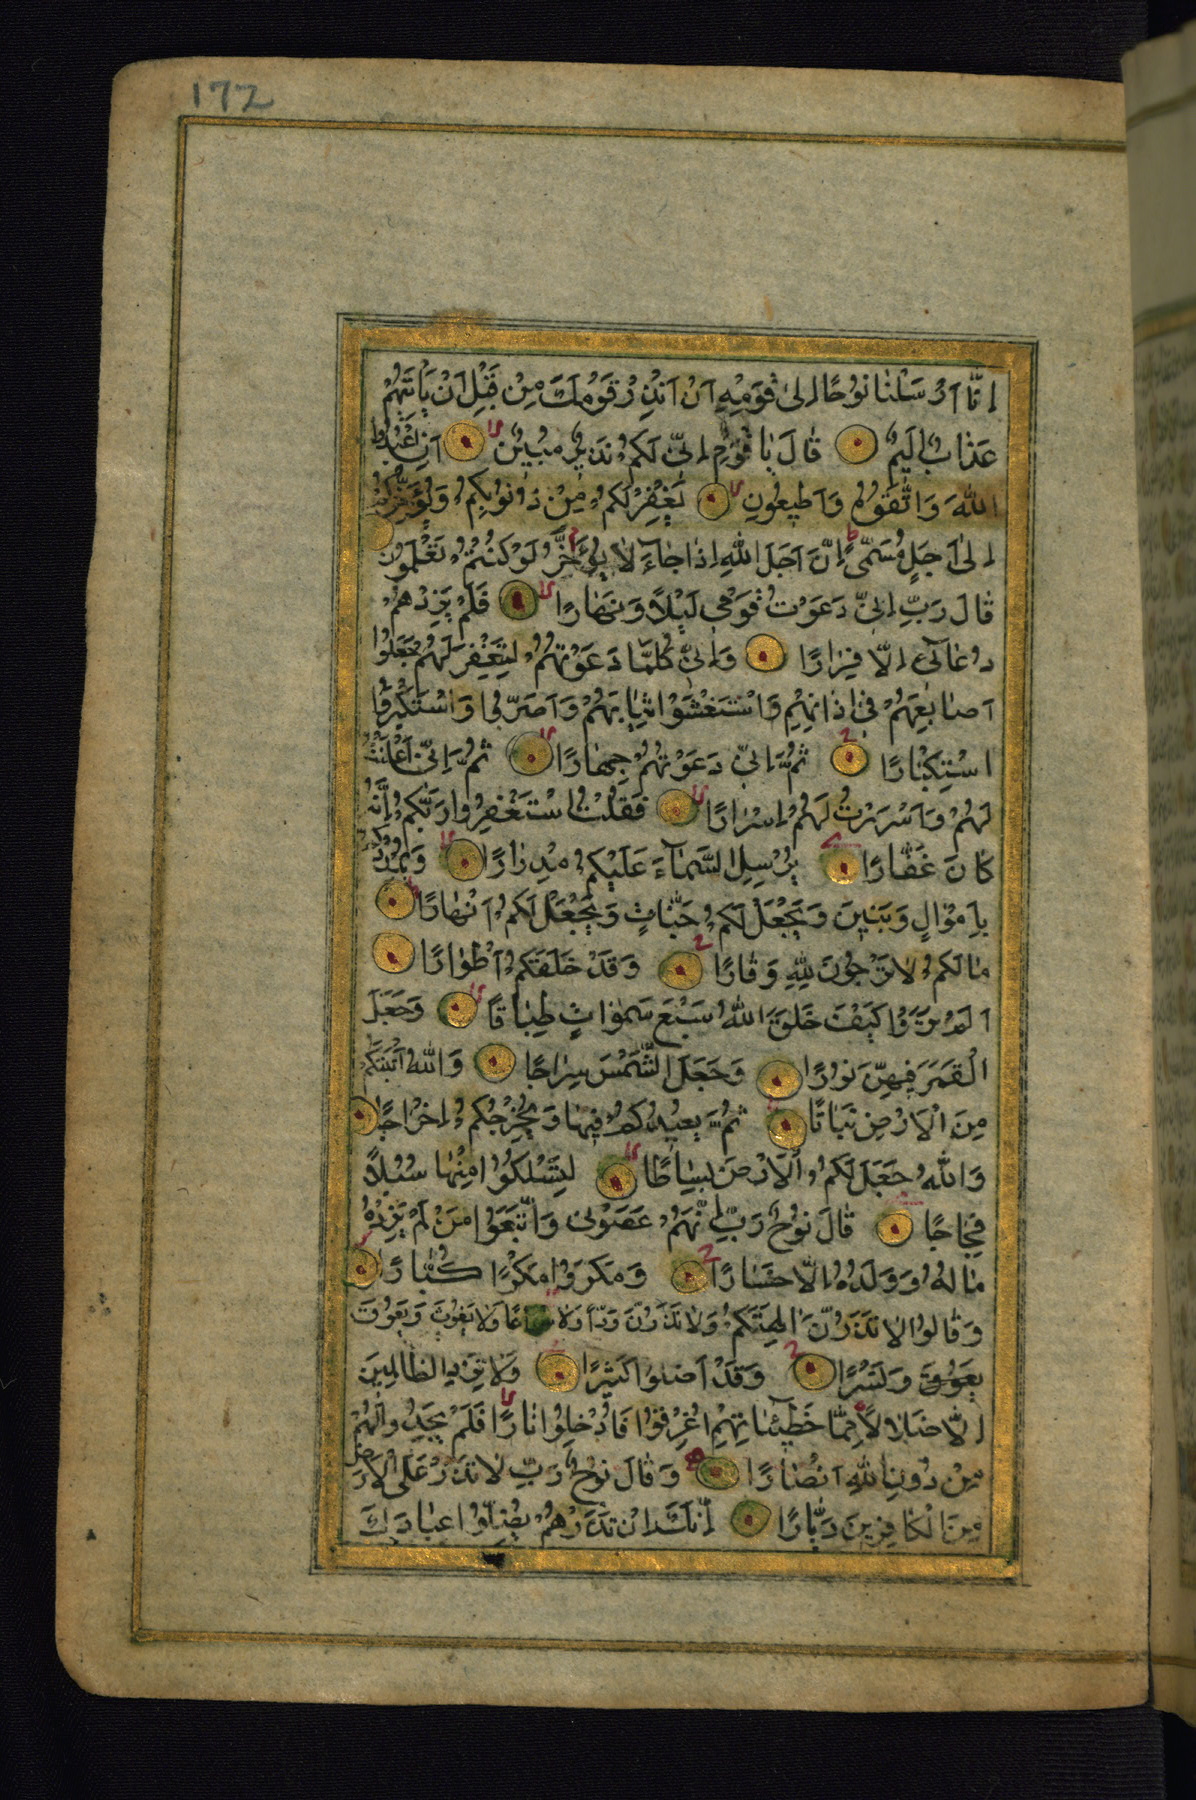 172
اِنَّا اَرْسَلْنَا نُوحًا اِلىٰ قَوْمِهِ اَنْ اَنْذِرْ قَوْمَكَ مِنْ قَبْلِ اَنْ يَاْتِيَهُمْ
عَذَابٌ اَلِيمٌ قَالَ يَا قَوْمِ اِنِّى لَكُمْ نَذِيرٌ مُبِينٌ اَنِ اعْبُدُوا
اللّٰهَ وَاتَّقُوهُ وَاَطِيعُونِ يَغْفِرْ لَكُمْ مِنْ ذُنُوبِكُمْ وَيُؤَخِّرْكُمْ
اِلىٰ اَجَلٍ مُسَمًّى اِنَّ اَجَلَ اللّٰهِ اِذَا جَاءَ لَا يُؤَخَّرُ لَوْ كُنْتُمْ تَعْلَمُونَ
قَالَ رَبِّ اِنِّى دَعَوْتُ قَوْمِى لَيْلًا وَنَهَارًا فَلَمْ يَزِدْهُمْ
دُعَائِى اِلَّا فِرَارًا وَاِنِّى كُلَّمَا دَعَوْتُهُمْ لِتَغْفِرَ لَهُمْ جَعَلُوا
اَصَابِعَهُمْ فِى اٰذَانِهِمْ وَاسْتَغْشَوْا ثِيَابَهُمْ وَاَصَرُّوا وَاسْتَكْبَرُوا
اسْتِكْبَارًا ثُمَّ اِنِّى دَعَوْتُهُمْ جِهَارًا ثُمَّ اِنِّى اَعْلَنْتُ
لَهُمْ وَاَسْرَرْتُ لَهُمْ اِسْرَارًا فَقُلْتُ اسْتَغْفِرُوا رَبَّكُمْ اِنَّهُ
كَانَ غَفَّارًا يُرْسِلِ السَّمَاءَ عَلَيْكُمْ مِدْرَارًا وَيُمْدِدْكُمْ
بِاَمْوَالٍ وَبَنِينَ وَيَجْعَلْ لَكُمْ جَنَّاتٍ وَيَجْعَلْ لَكُمْ اَنْهَارًا
مَا لَكُمْ لَا تَرْجُونَ لِلّٰهِ وَقَارًا وَقَدْ خَلَقَكُمْ اَطْوَارًا
اَلَمْ تَرَوْا كَيْفَ خَلَقَ اللّٰهُ سَبْعَ سَمٰوَاتٍ طِبَاقًا وَجَعَلَ
الْقَمَرَ فِيهِنَّ نُورًا وَجَعَلَ الشَّمْسَ سِرَاجًا وَاللّٰهُ اَنْبَتَكُمْ
مِنَ الْاَرْضِ نَبَاتًا ثُمَّ يُعِيدُكُمْ فِيهَا وَيُخْرِجُكُمْ اِخْرَاجًا
وَاللّٰهُ جَعَلَ لَكُمُ الْاَرْضَ بِسَاطًا لِتَسْلُكُوا مِنْهَا سُبُلًا
فِجَاجًا قَالَ نُوحٌ رَبِّ اِنَّهُمْ عَصَوْنِى وَاتَّبَعُوا مَنْ لَمْ يَزِدْهُ
مَالُهُ وَوَلَدُهُ اِلَّا خَسَارًا وَمَكَرُوا مَكْرًا كُبَّارًا
وَقَالُوا لَا تَذَرُنَّ اٰلِهَتَكُمْ وَلَا تَذَرُنَّ وَدًّا وَلَا سُوَاعًا وَلَا يَغُوثَ وَيَعُوقَ
يعوق وَنَسْرًا وَقَدْ اَضَلُّوا كَثِيرًا وَلَا تَزِدِ الظَّالِمِينَ
اِلَّا ضَلَالًا مِمَّا خَطِيئَاتِهِمْ اُغْرِقُوا فَاُدْخِلُوا نَارًا فَلَمْ يَجِدُوا لَهُمْ
مِنْ دُونِ اللّٰهِ اَنْصَارًا وَقَالَ نُوحٌ رَبِّ لَا تَذَرْ عَلَى الْاَرْضِ
مِنَ الْكَافِرِينَ دَيَّارًا اِنَّكَ اِنْ تَذَرْهُمْ يُضِلُّوا عِبَادَكَ